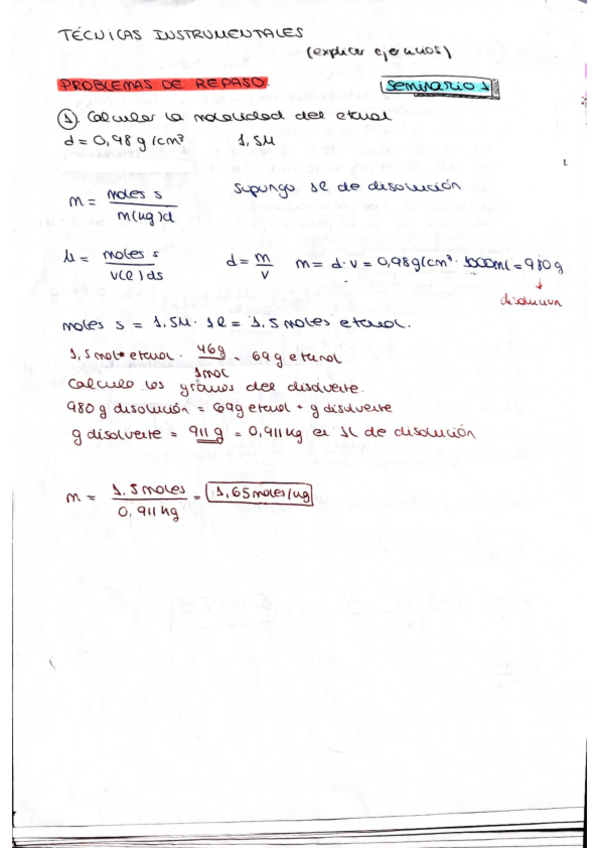 TÉCNICAS INSTRUMENTALES
(explicar ejercicios)
PROBLEMAS DE REPASO.
Seminario 1
① Calcular la molalidad del etanol
d = 0,98 g/cm³ 1,5M
m = moles s / m(kg)d
Supongo 1L de disolución
M = moles s / V(l) ds
d = m / v m = d·v = 0,98g/cm³ · 1000ml = 980 g
↓
disolución
moles s = 1,5M · 1l = 1,5 moles etanol.
1,5 mol etanol · 46g / 1mol = 69 g etanol
Calculo los gramos del disolvente.
980 g disolución = 69g etanol + g disolvente
g disolvente = 911 g = 0,911 kg en 1L de disolución
m = 1,5 moles / 0,911 kg = 1,65 moles/kg